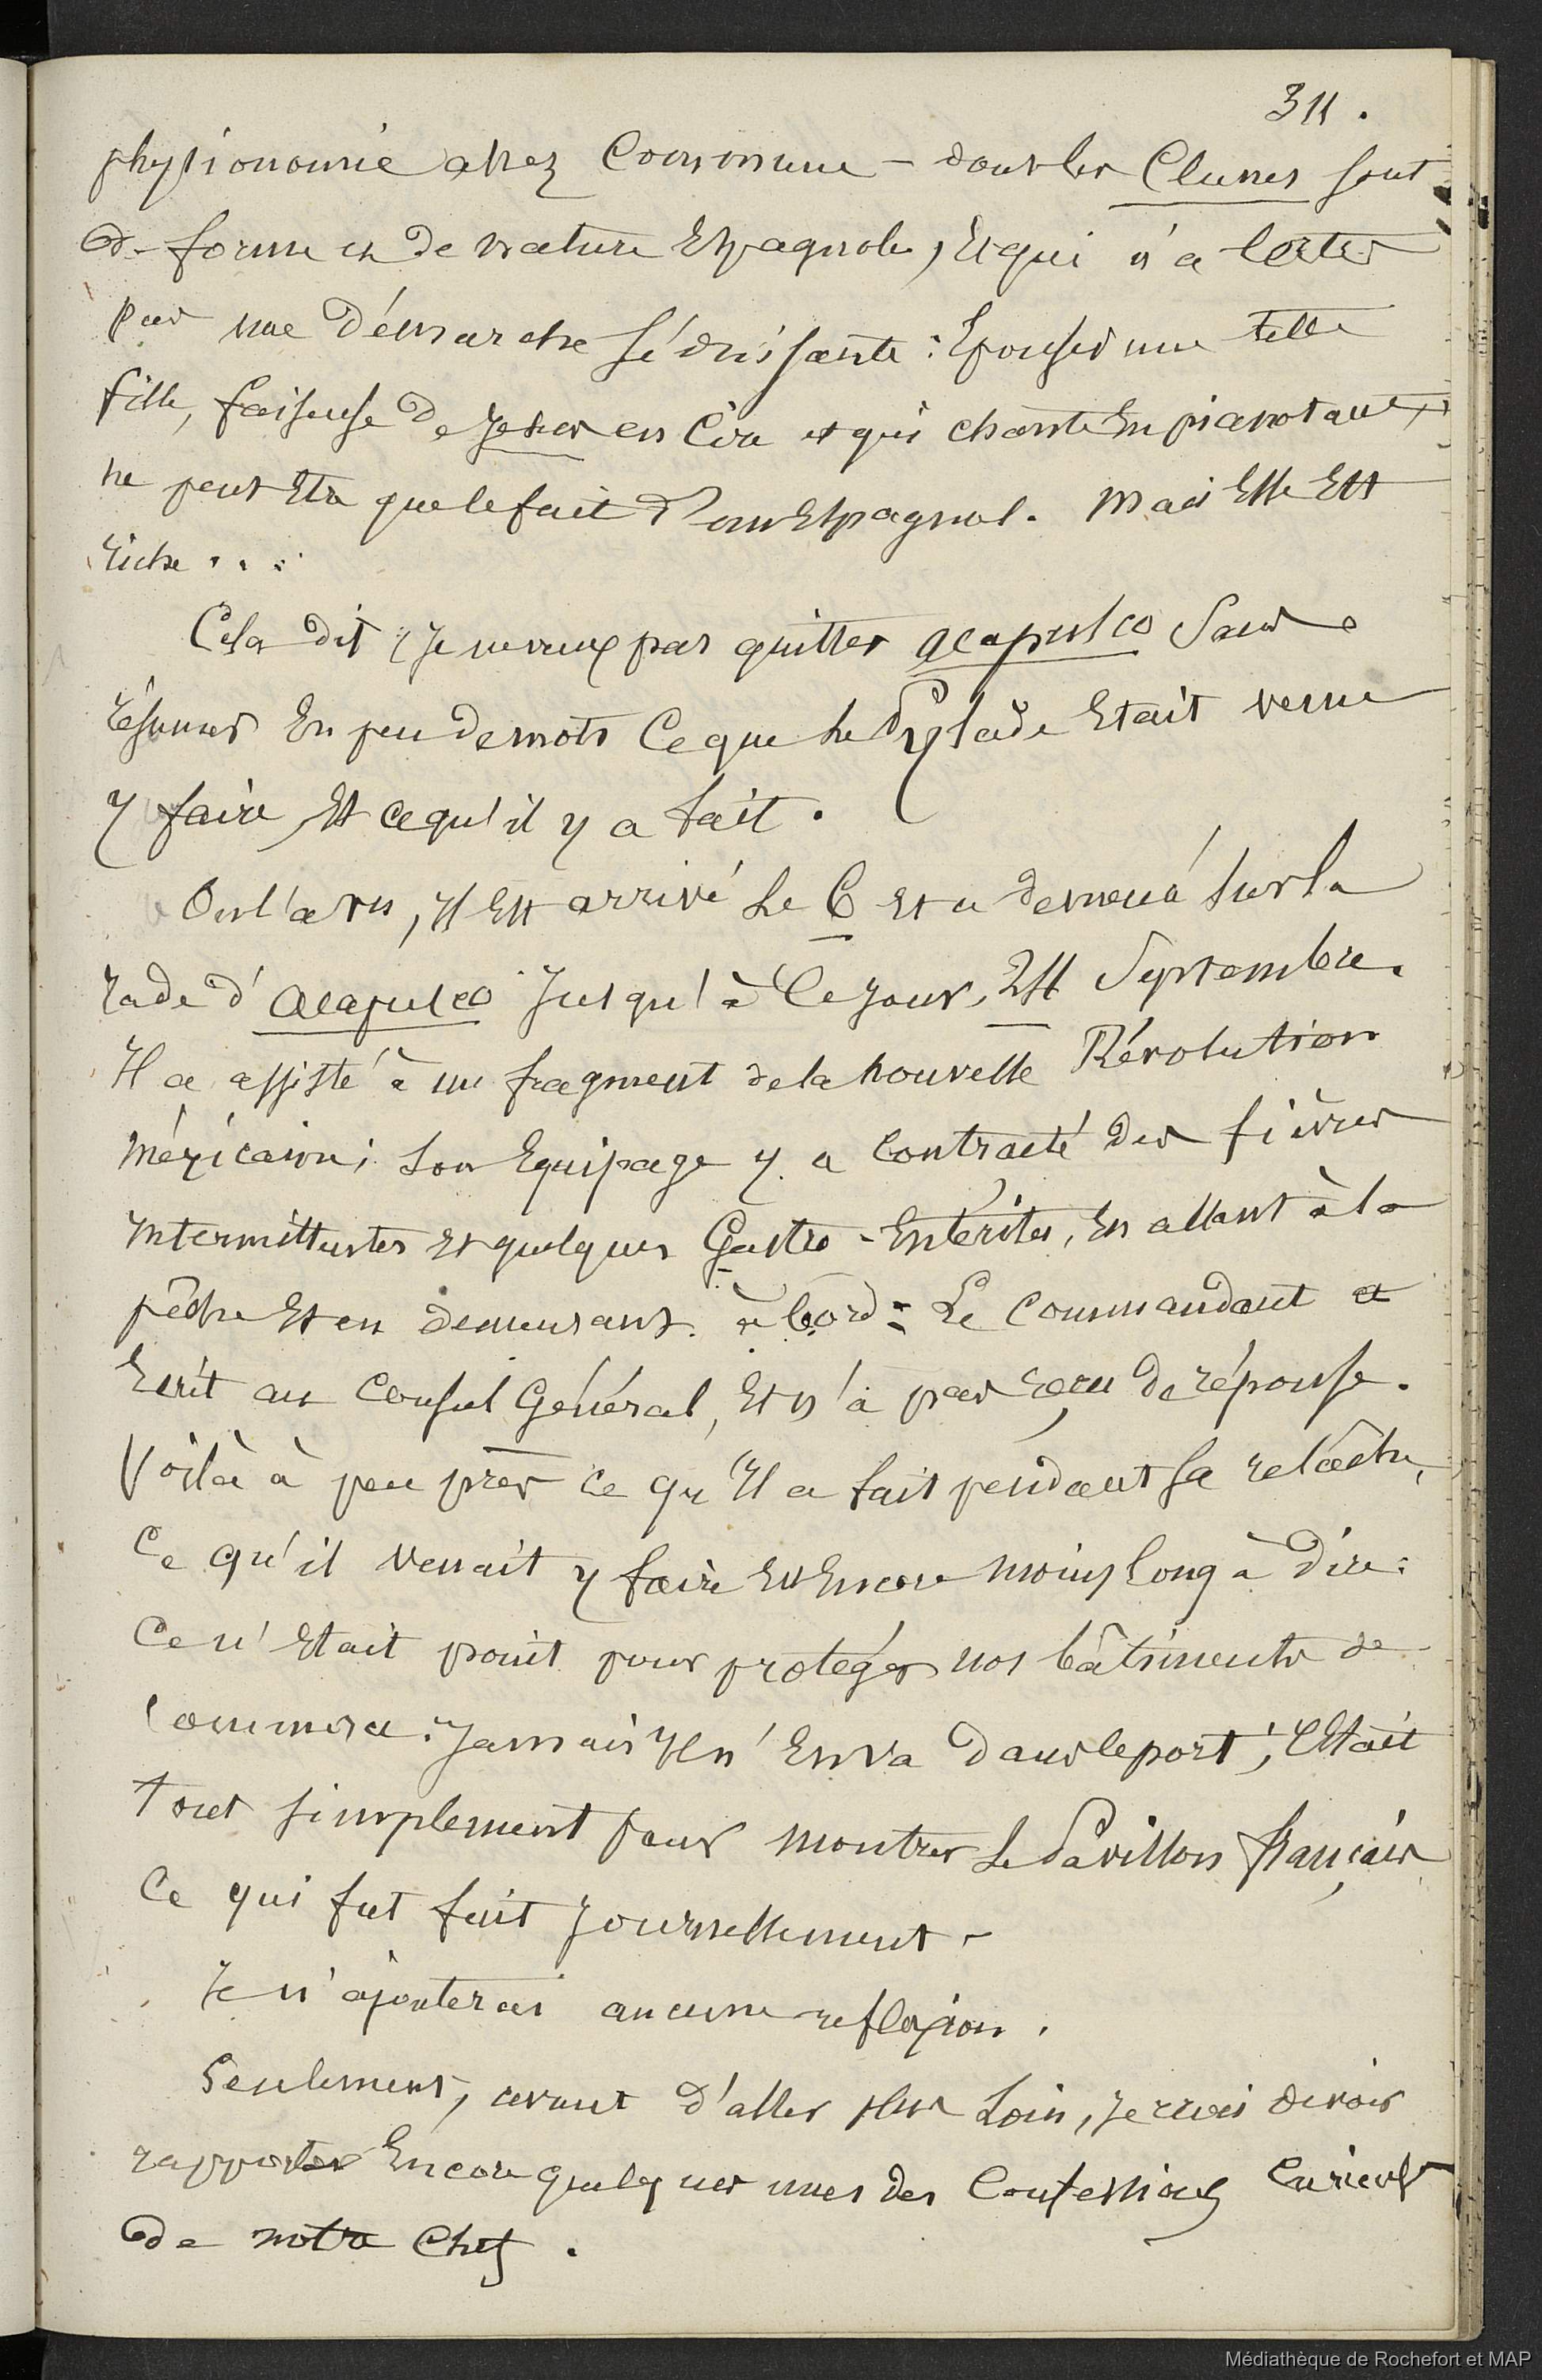 311.
physionomie assez Commune – dont les Clunes sont
de forme et de nature Espagnoles, Et qui n'a Certes
pas une démarche séduisante : Epouser une telle
fille, faiseuse de Jesus en Cire et qui chante En pianotant,
ne peut Etre que le fait d'un Espagnol. Mais Elle Est
riche . . . .
Cela dit, je ne veux pas quitter Acapulco Sans
résumer En peu de mots Ce que le Pylade Etait venu
y faire, Et ce qu'il y a fait.
On l'a vu, Il Est arrivé le 6 Et a demeuré sur la
rade d'Acapulco Jusqu'à Ce jour, 24 Septembre.
Il a assisté à un fragment de la nouvelle Révolution
Méxicaine; son Equipage y a Contracté des fièvres
Intermittentes Et quelques Gastro-Entérites, En allant à la
pêche Et en demeurant à bord : Le Commandant a
Ecrit au Consul Général, Et n'a pas reçu de réponse.
Voilà à peu près ce qu'Il a fait pendant sa relâche,
Ce qu'il venait y faire Est Encore moins long à dire :
Ce n'Etait point pour protéger nos bâtiments de
Commerce. Jamais Il n'En va dans le port; C'Etait
tout simplement pour montrer le Pavillon français
Ce qui fut fait Journellement –
Je n'ajouterai aucune reflexion.
Seulement, avant d'aller plus Loin, je crois devoir
rapporter Encore quelques unes des Confessions Curieuses
de notre Chef.
Médiathèque de Rochefort et MAP